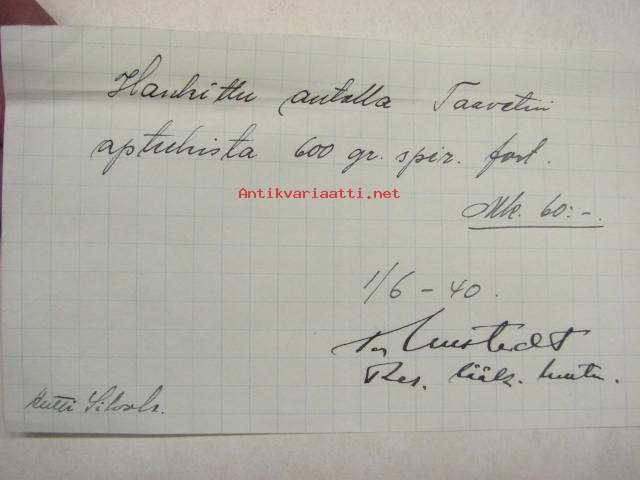 Hankittu autolla Taavetin
aptekista 600 gr. spir. fort.
Antikvariaatti.net
Mk. 60:-.
1/6 - 40.
Res. lääk.